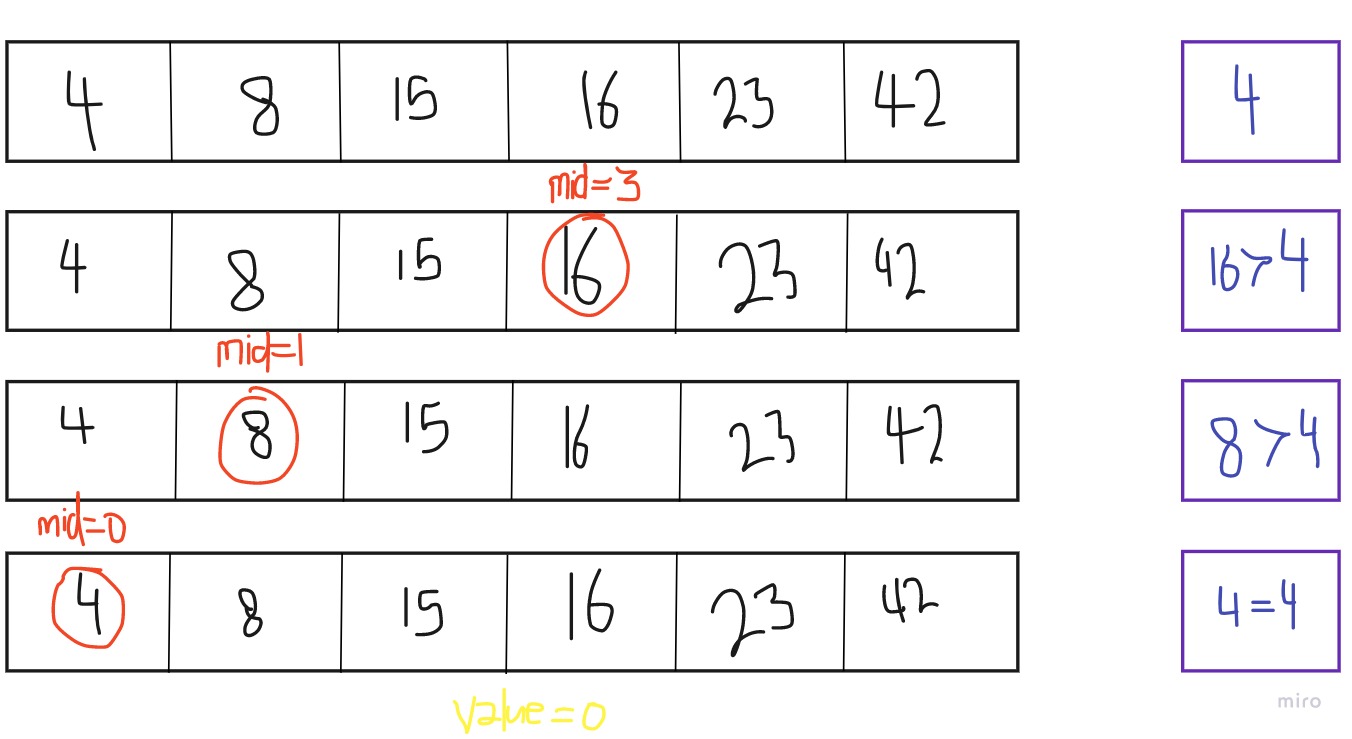 4 8 15 16 23 42 4
mid=3
4 8 15 16 23 42 16>4
mid=1
4 8 15 16 23 42 8>4
mid=0
4 8 15 16 23 42 4=4
value=0
miro